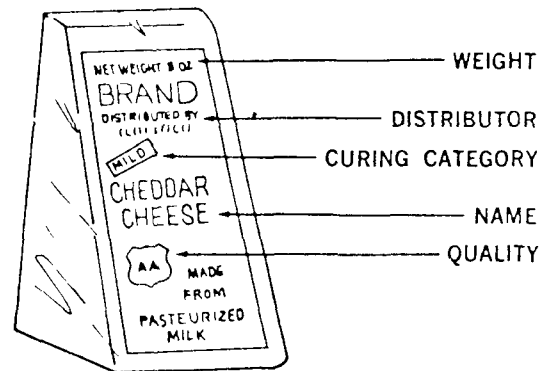 NET WEIGHT 8 OZ
BRAND
DISTRIBUTED BY
MILD
CHEDDAR
CHEESE
AA
MADE
FROM
PASTEURIZED
MILK
WEIGHT
DISTRIBUTOR
CURING CATEGORY
NAME
QUALITY